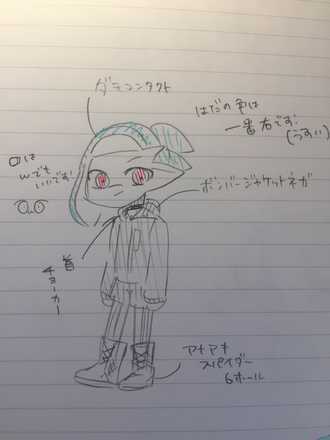 ダテコンタクト
はだの色は
一番右です!
(うすい)
口は
wでも
いいです!
ボンバージャケットネガ
首
チョーカー
アナアキ
スパイダー
6ホール